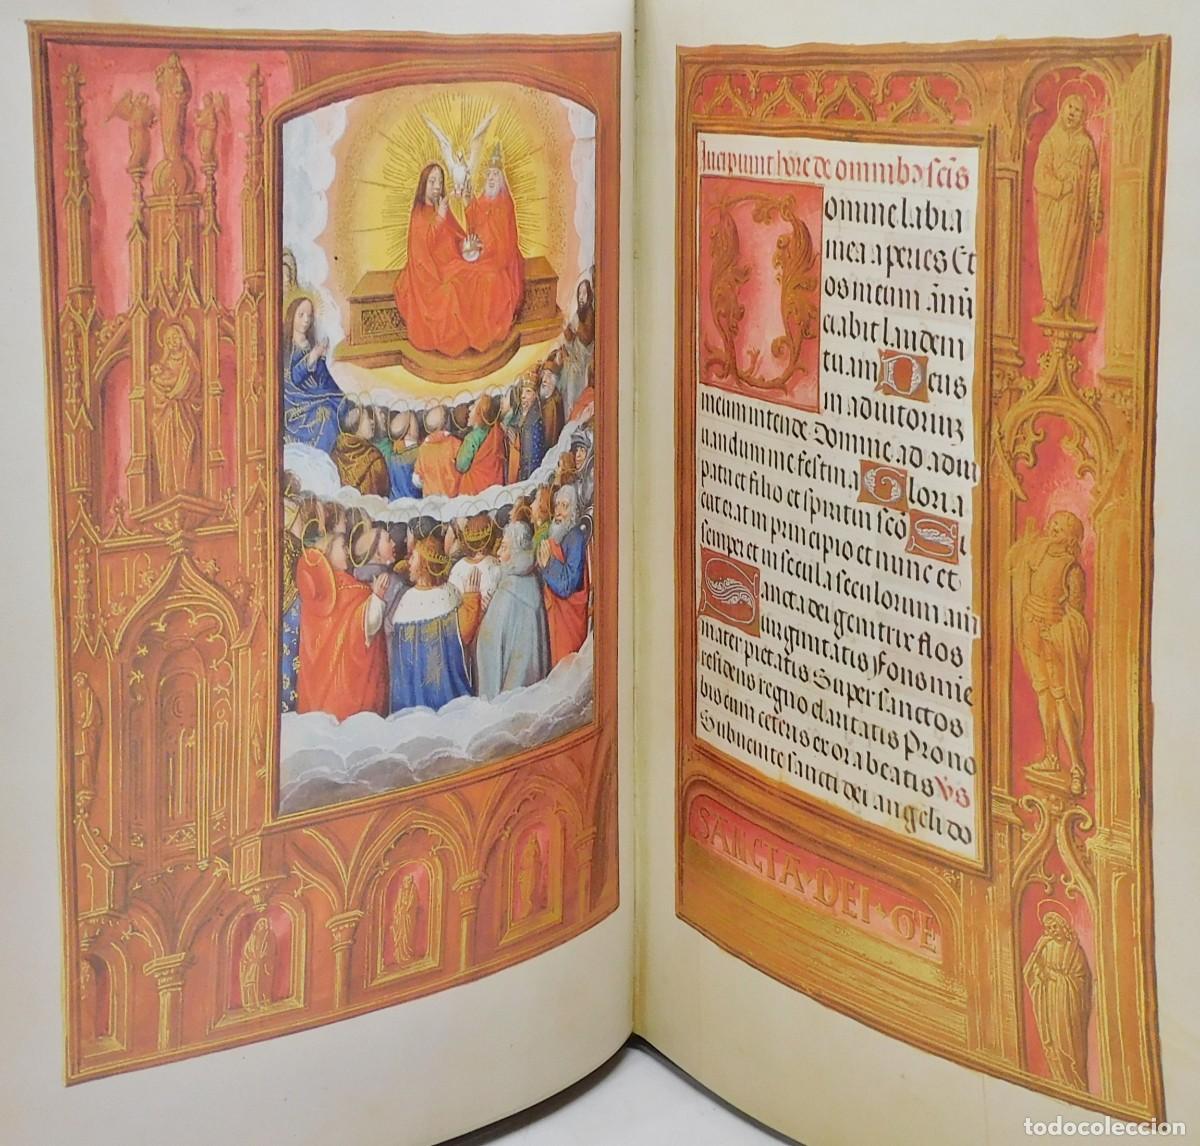 Incipiunt hore de omnibȝ scīs
Domine labia
mea aperies Et
os meum ānū
ciabit laudem
tuam Deus
in adiutoriuȝ
meum intende Domine ad adiu
uandum me festina Gloria
patri et filio et spiritui scō Si
cut erat in principio et nunc et
semper et in secula seculorum am
Sancta dei genitrix flos
uirginitatis Fons mie
mater pietatis Super sanctos
residens regno claritatis Prono
bis cum ceteris ex ora beatis Vs
Subuenite sancti dei angeli do
SANCTA · DEI · GE
todocoleccion